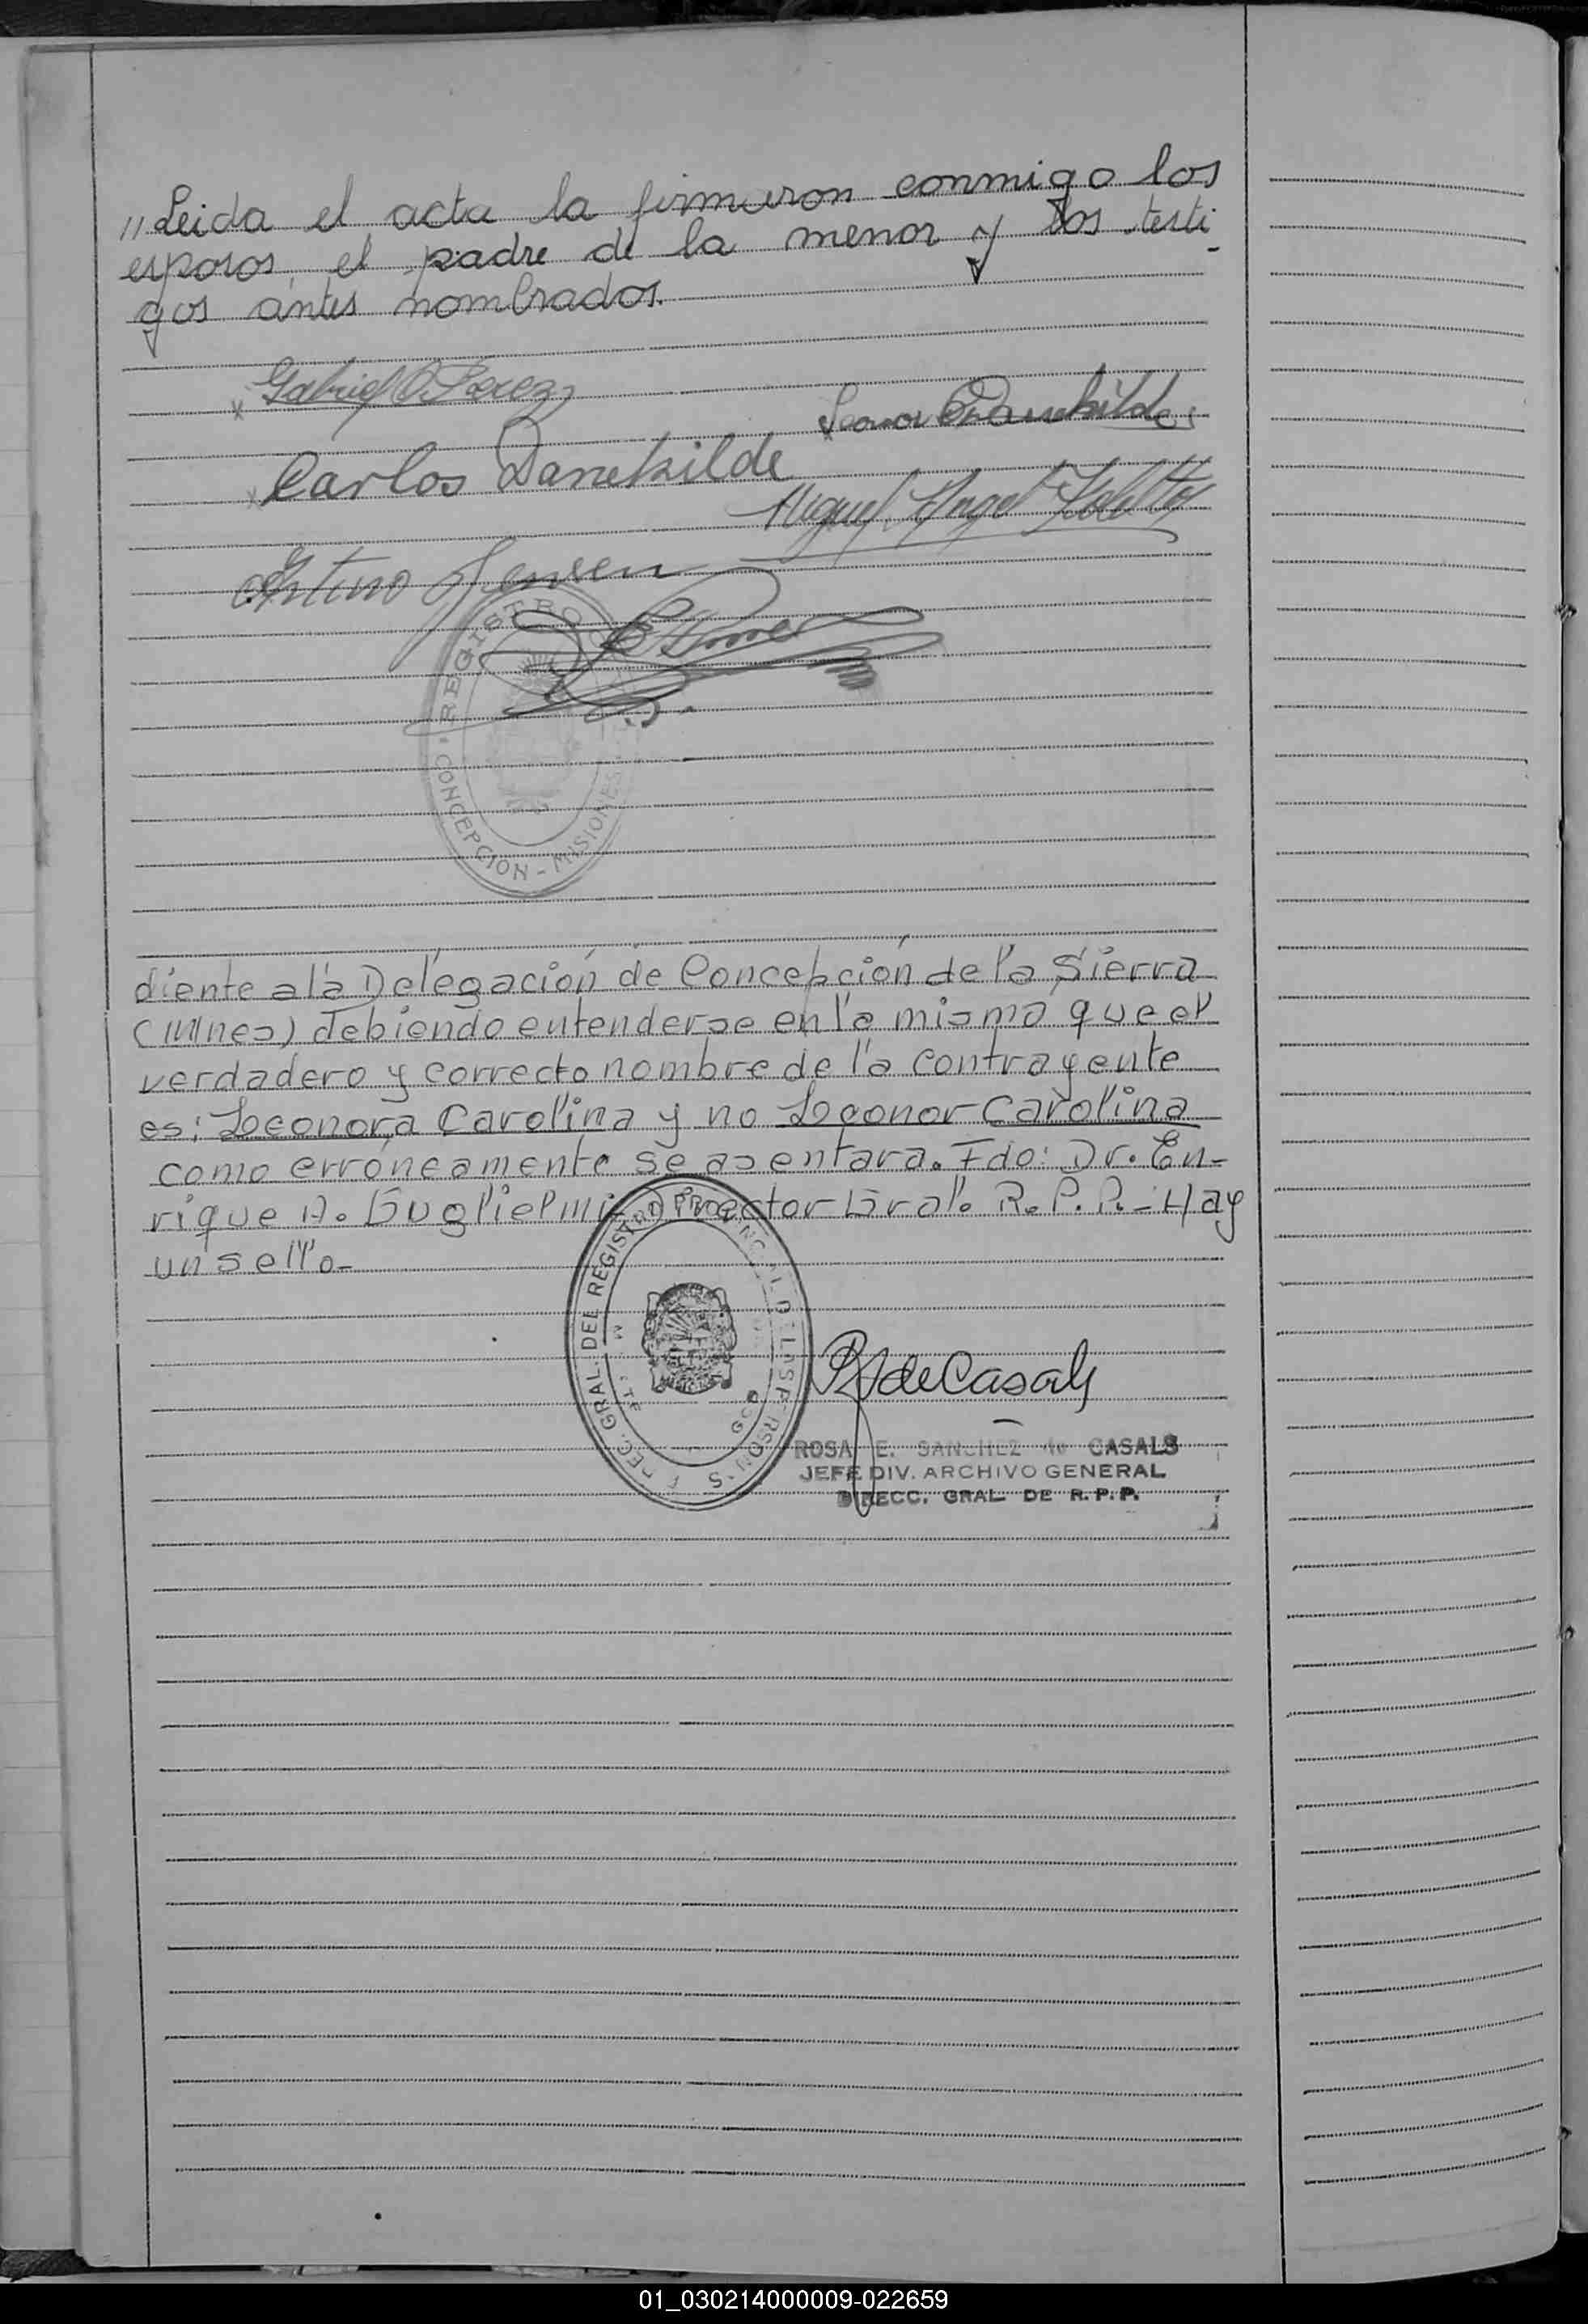 "Leida el acta la firmaron conmigo los
esposos, el padre de la menor y los testi-
gos ántes nombrados.
x Gabriel O Perez
Leonor C Danekilde
x Carlos Danekilde
Miguel Angel
Arturo Jensen
REGISTRO
CONCEPCION - MISIONES
diente a la Delegación de Concepción de la Sierra
(Mnes) debiendo entenderse en la misma que el
verdadero y correcto nombre de la contrayente
es: Leonora Carolina y no Leonor Carolina
como erróneamente se asentara. Fdo: Dr. En-
rique A. Guglielmi Director Gral. R.P.P.- Hay
un sello-
GRAL. DEL REGISTRO
R S de Casals
ROSA E. SANCHEZ de CASALS
JEFE DIV. ARCHIVO GENERAL
DIRECC. GRAL DE R.P.P.
01_030214000009-022659